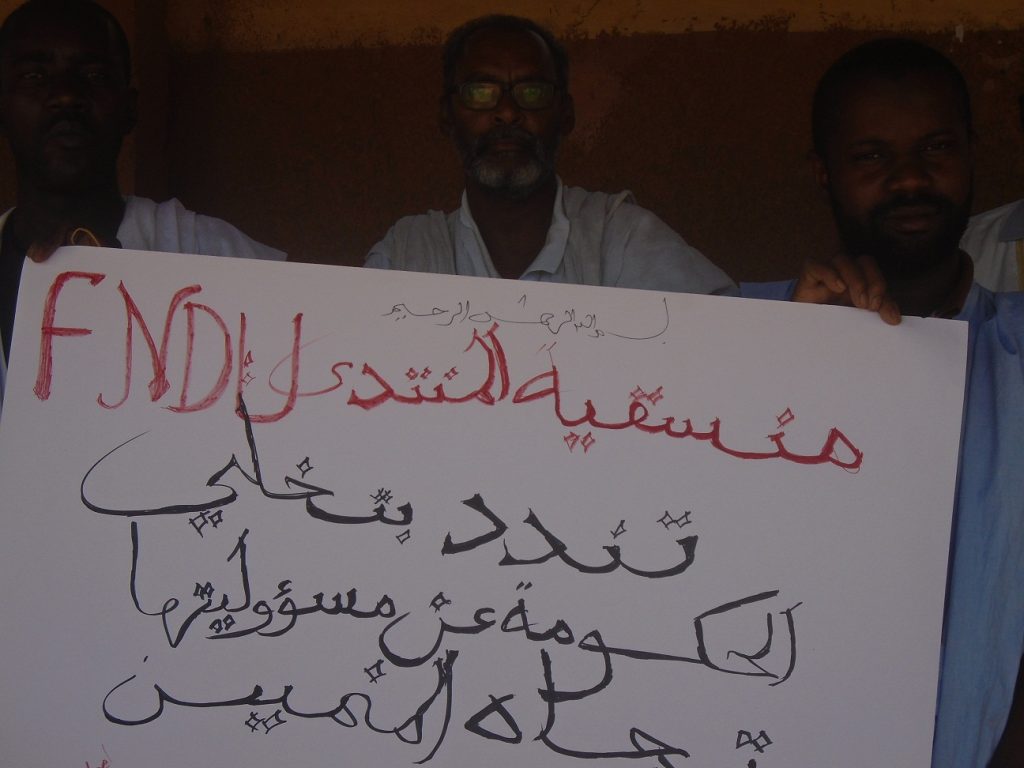 بسم الله الرحمن الرحيم
منسقية المنتدى FNDU
تندد بتخلي
الحكومة عن مسؤوليتها
تجاه